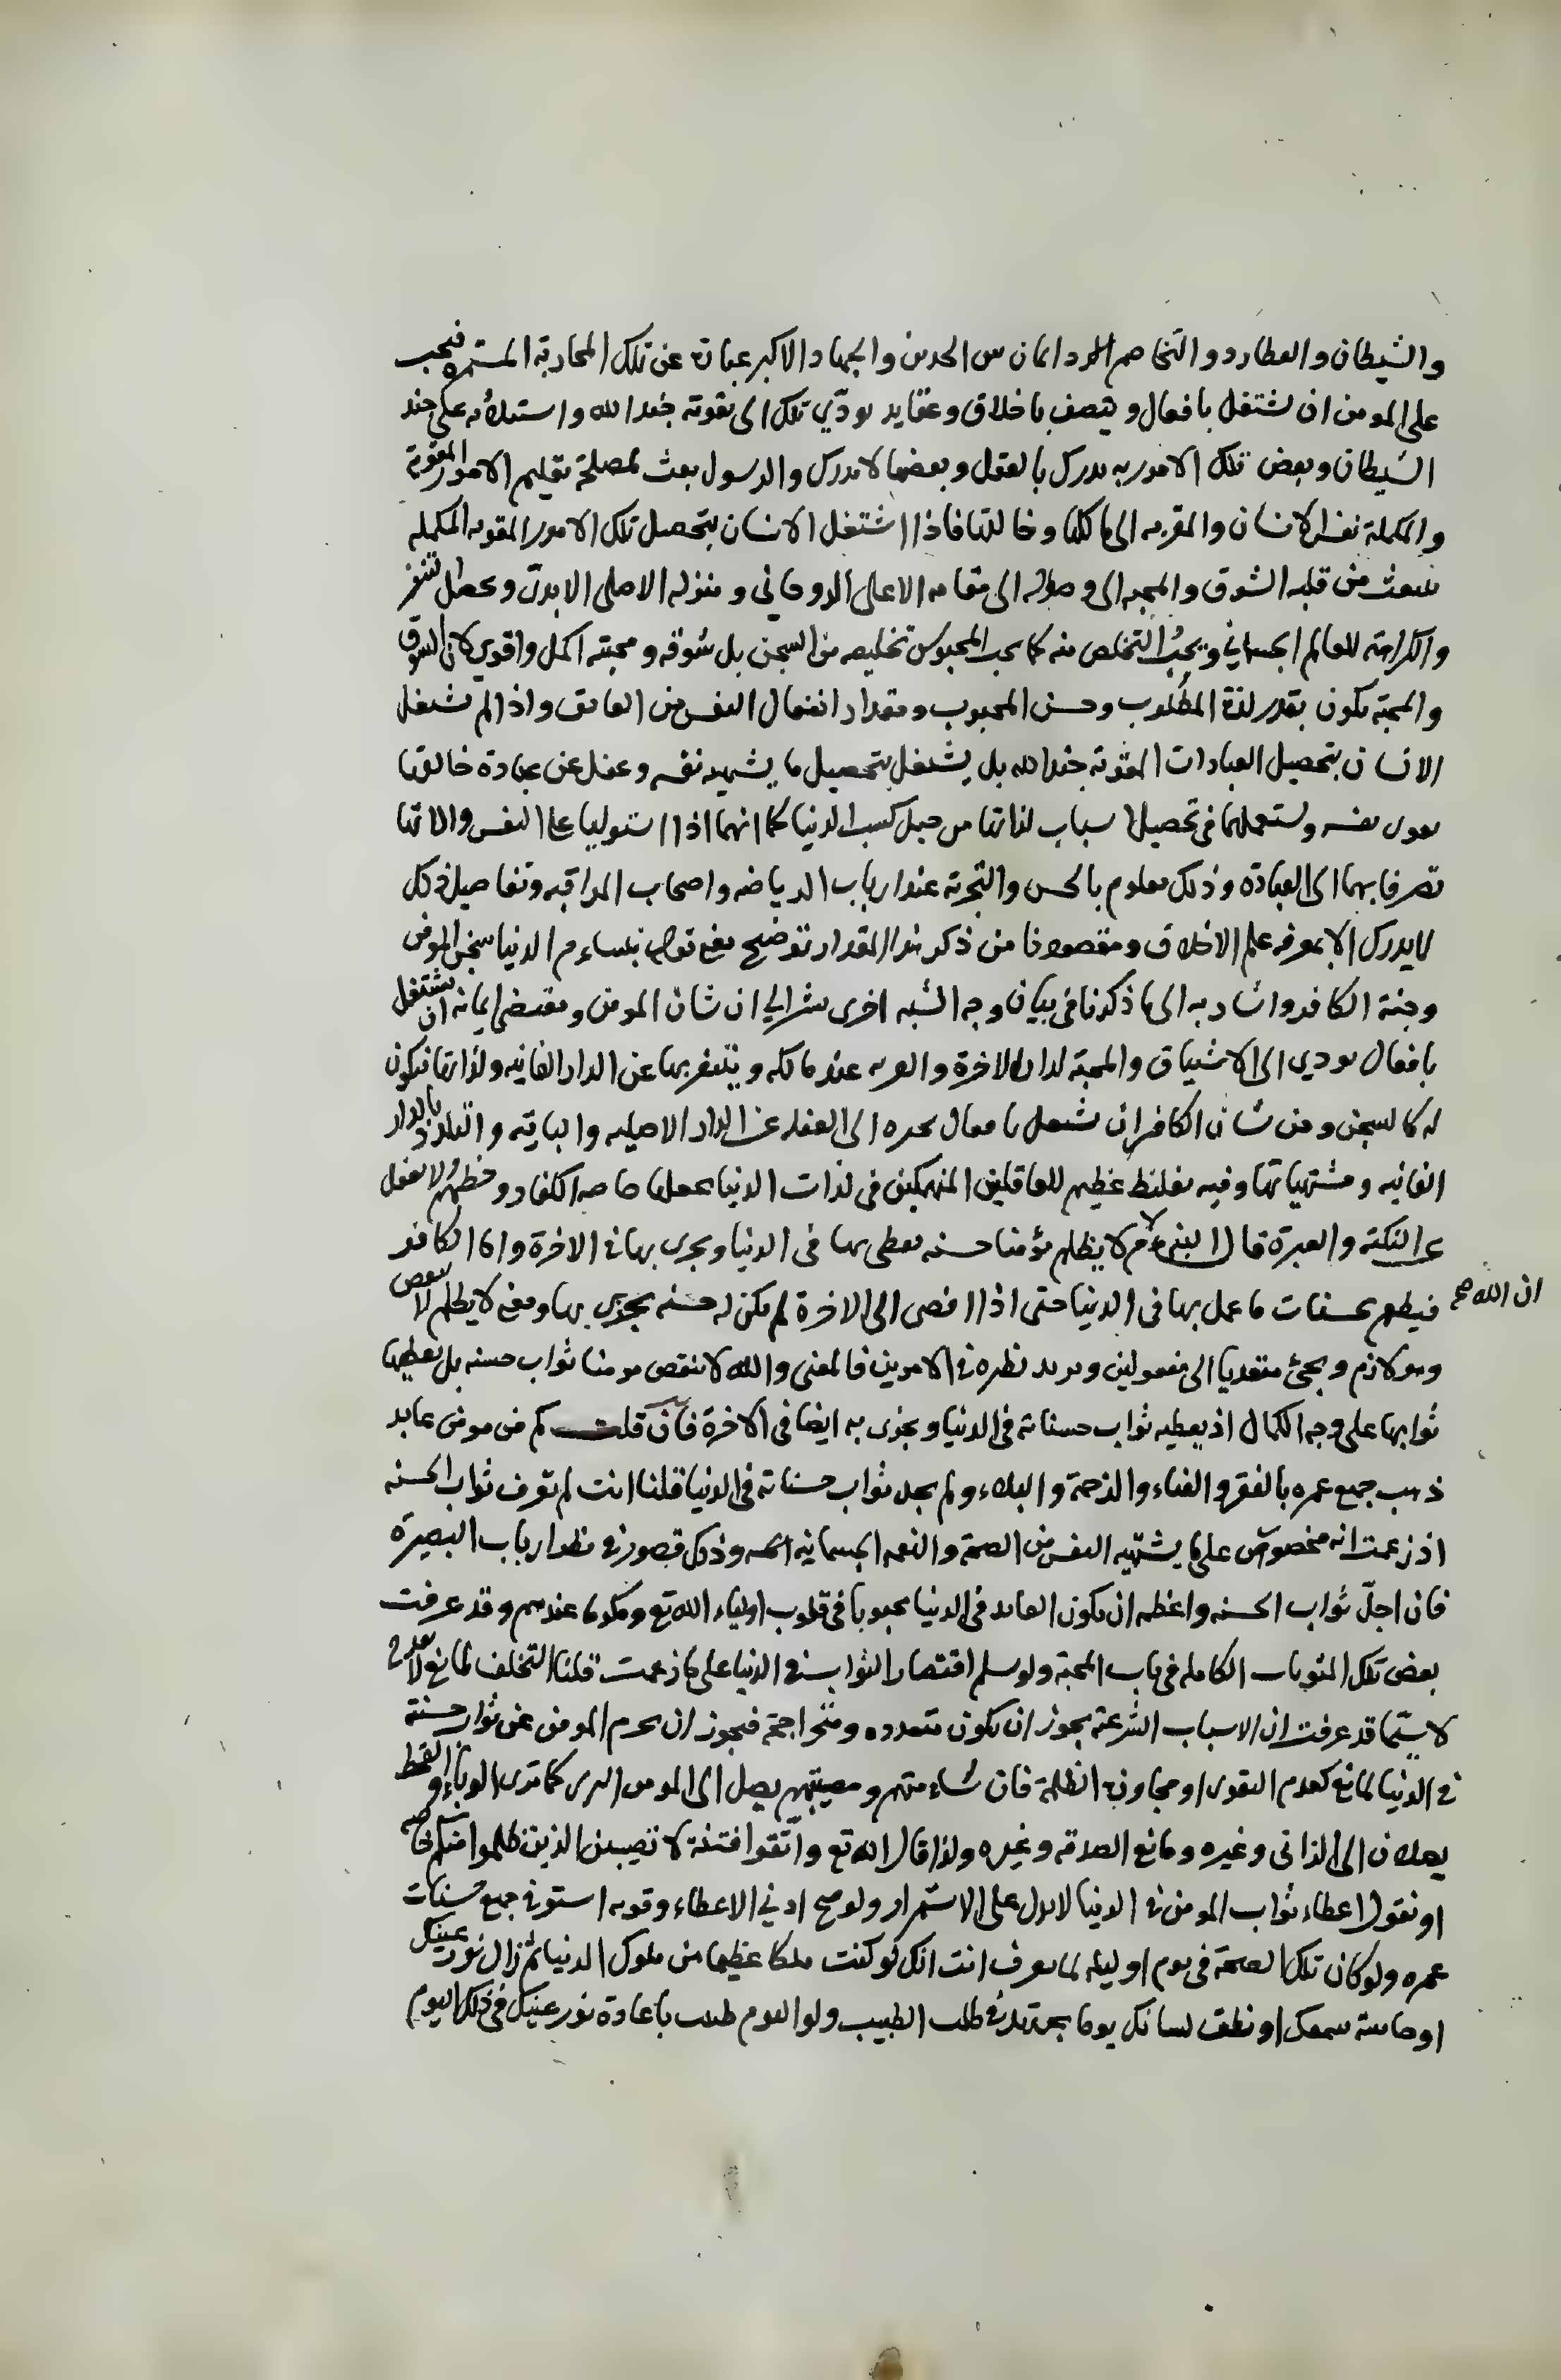 والشيطان والعطارد والتخاصم دايمان بين الحدين والجهاد الاكبر عبارة عن تلك المحاربة المستمرة فيجب
على المومن ان يشتغل بافعال ويتصف باخلاق وعقايد يودّي تلك الى تقوية جند الله واستيلائه على جند
الشيطان وبعض تلك الامور يدرك بالعقل وبعضها لا يدرك والرسول بعث لمصلحة تعليم الامور المقوية
والمكملة نفس الانسان والمقربه الى مالكها وخالقها فاذا اشتغل الانسان بتحصيل تلك الامور المقويه المكمله
ينبعث من قلبه الشوق والمحبه الى وصوله الى مقامه الاعلى الروحاني ومنزله الاصلي الابدىّ ويحصل التنفر
والكراهة للعالم الجسماني ويحبّ التخلص منه كما يحب المحبوس تخليصه من السجن بل شوقه ومحبته اكمل واقوى لان الشوق
والمحبة يكون بقدر لذة المطلوب وحسن المحبوب ومقدار انفعال النفس من العايق واذا لم يشتغل
الانسان بتحصيل العبادات المقوية جند الله بل يشتغل بتحصيل ما يشتهيه نفسه وغفل عن عبادة خالقها
يقوى نفسه ويستعملها فى تحصيل اسباب لذاتها من قبيل كسب الدنيا كما انهما اذا استوليا على النفس والاتها
تصرفا بهما الى العبادة وذلك معلوم بالحس والتجربة عند ارباب الرياضه واصحاب المراقبه وتفاصيل ذلك
لا يدرك الا بمعرفه علم الاخلاق ومقصودنا من ذكر هذا المقدار توضيح معنى قوله الدنيا سجن المومن
وجنة الكافر واشار به الى ما ذكرنا فى بيان وجه الشبه اخرى يشير الى ان شان المومن ومقتضى ايمانه ان يشتغل
بافعال يودي الى الاشتياق والمحبة لدار الاخرة والقربه عند مالكه ويتنفر بها عن الدار الفانيه ولذاتها فيكون
له كالسجن ومن شان الكافر ان يشتغل بافعال يجره الى الغفله عن الدار الاصليه والباقية والتلذذ بالدار
الفانيه ومشتهياتها وفيه تغليظ عظيم للغافلين المنهمكين فى لذات الدنيا يجعلها خاصه الكفار وحظهم ولا تغفل
عن النكتة والعبرة قال النبى ع م لا يظلم مؤمنا حسنه يعطى بها فى الدنيا ويجزى بها فى الاخرة واما الكافر
ان الله صح
فيطعم بحسنات ما عمل بها فى الدنيا حتى اذا افضى الى الاخرة لم يكن له حسنه يجزى بها ومعنى لا يظلم لا ينقص
وهو لازم ويجئ متعديا الى مفعولين ويريد نظره فى الامرين فالمعنى والله لا ينقص مومنا ثواب حسنه بل يعطيها
ثوابها على وجه الكمال اذ يعطيه ثواب حسناته فى الدنيا ويجزى به ايضا فى الاخرة فان قلت كم من مومن عابد
ذهب جميع عمره بالفقر والفناء والزحمة والبلاء ولم يجد ثواب حسناته فى الدنيا قلنا انت لم تعرف ثواب الحسنه
اذ زعمت انه مخصوص على ما يشتهيه النفس من الصحة والنعم الجسمانيه وذلك قصور فى نظر ارباب البصيرة
فان اجلّ ثواب الحسنه واعظمه ان يكون العابد فى الدنيا محبوبا فى قلوب اولياء الله تع ومكرما عندهم وقد عرفت
بعض تلك المثوبات الكامله فى باب المحبة ولو سلم اقتصار الثواب فى الدنيا على ما زعمت قلنا التخلف لمانع لا يقدح
لا سيّما قد عرفت ان الاسباب الشرعية يجوز ان يكون متعدده ومتزاحمة فيجوز ان يحرم المومن عن ثواب حسنة
فى الدنيا لمانع كعدم التقوى او مجاورة الظلمة فان مصيبتهم يصل الى المومن البرى كما ترى الوباء والقحط
يصلان الى الزانى وغيره ومانع الصدقه وغيره ولذا قال الله تع واتّقوا فتنة لا تصيبن الذين ظلموا منكم خاصه
او نقول اعطاء ثواب المومن فى الدنيا لا يدل على الاستمرار ولو صح ادني الاعطاء وقوبه استوفى جميع حسنات
عمره ولو كان تلك الصحة فى يوم او ليله لما تعرف انت انك لو كنت ملكا عظيما من ملوك الدنيا ثم زال نور عينيك
او حاسة سمعك او نطق لسانك يوما يجتهد فى طلب الطبيب ولو اليوم طلب باعادة نور عينيك فى ذلك اليوم